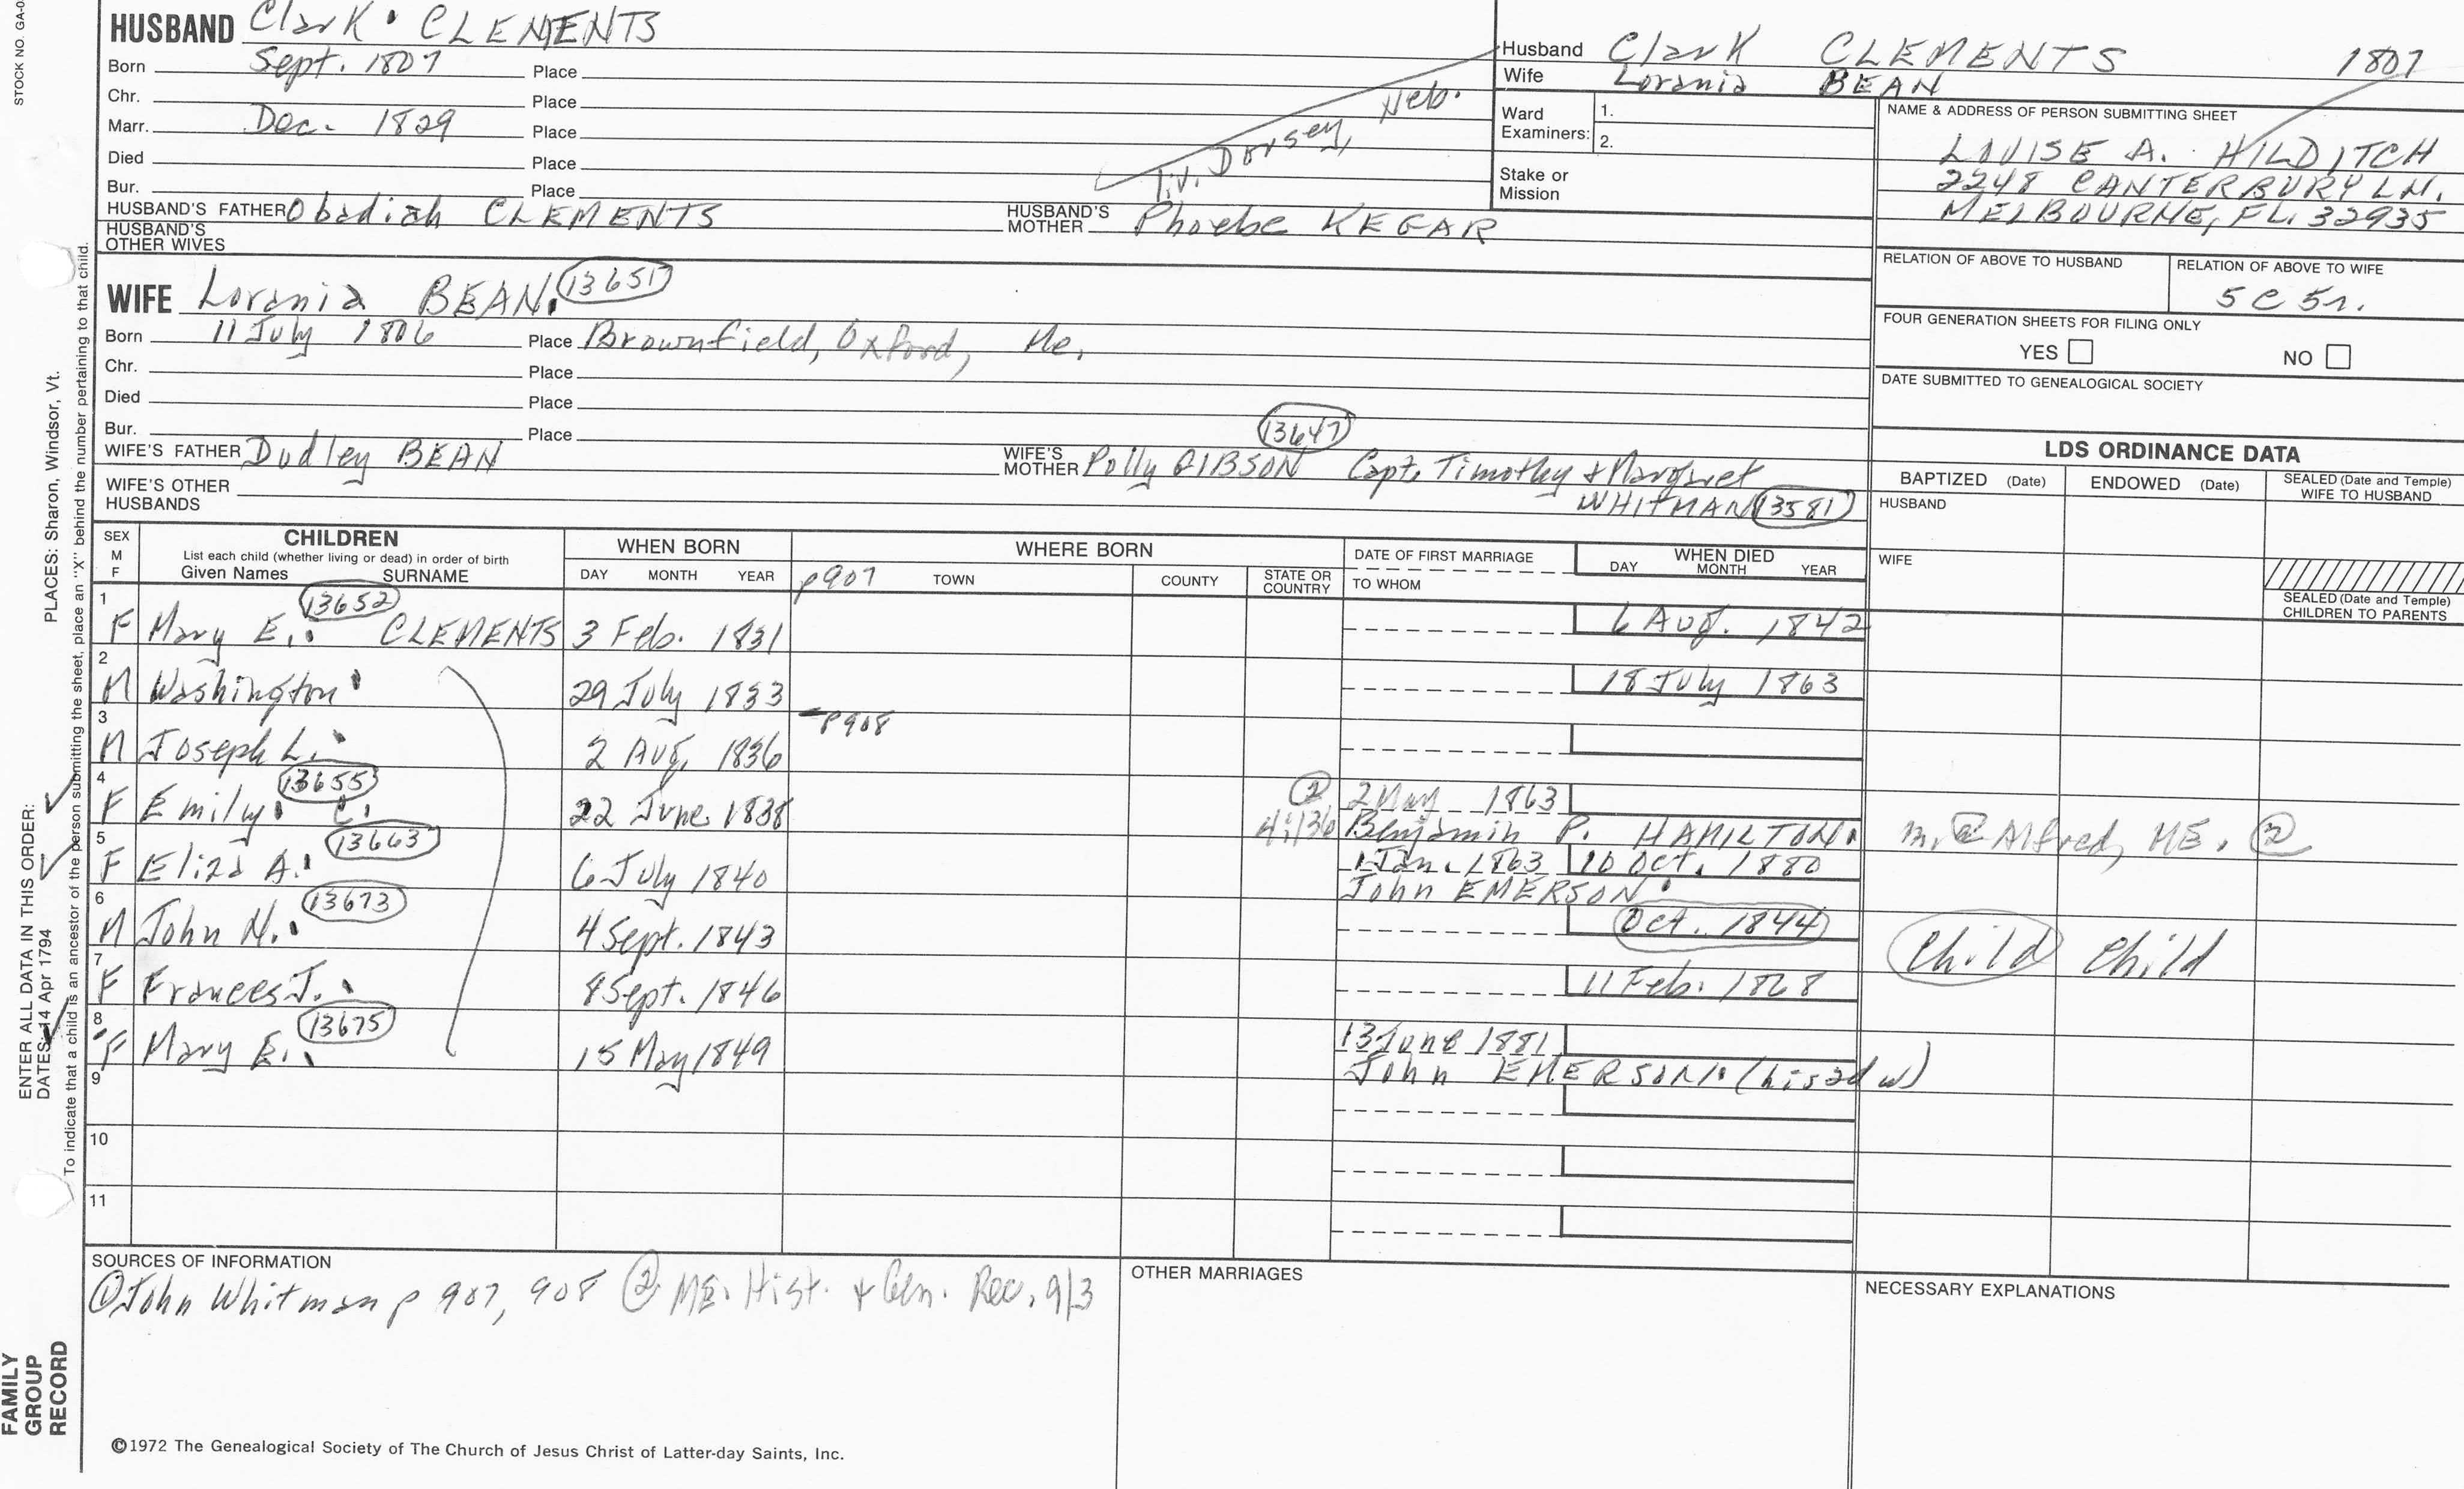 STOCK NO. GA-0
HUSBAND Clark CLEMENTS
Born Sept. 1807 Place
Chr. Place
Marr. Dec. 1829 Place
Died Place
Bur. Place
liv. Dorsey, Neb.
HUSBAND'S FATHER Obadiah CLEMENTS HUSBAND'S MOTHER Phoebe KEGAR
HUSBAND'S OTHER WIVES
Husband Clark CLEMENTS 1807
Wife Lorania BEAN
Ward Examiners: 1.
2.
Stake or Mission
NAME & ADDRESS OF PERSON SUBMITTING SHEET
LOUISE A. HILDITCH
2248 CANTERBURY LN.
MELBOURNE, FL. 32935
RELATION OF ABOVE TO HUSBAND RELATION OF ABOVE TO WIFE
5 C 5r.
FOUR GENERATION SHEETS FOR FILING ONLY
YES NO
DATE SUBMITTED TO GENEALOGICAL SOCIETY
WIFE Lorania BEAN. 13651
Born 11 July 1806 Place Brownfield, Oxford, Me.
Chr. Place
Died Place
Bur. Place
13647
WIFE'S FATHER Dudley BEAN WIFE'S MOTHER Polly GIBSON Capt. Timothy & Margaret
WHITMAN 13581
WIFE'S OTHER HUSBANDS
LDS ORDINANCE DATA
BAPTIZED (Date) ENDOWED (Date) SEALED (Date and Temple) WIFE TO HUSBAND
HUSBAND
WIFE
SEALED (Date and Temple) CHILDREN TO PARENTS
SEX M F CHILDREN List each child (whether living or dead) in order of birth Given Names SURNAME
WHEN BORN DAY MONTH YEAR
WHERE BORN p907 TOWN COUNTY STATE OR COUNTRY
DATE OF FIRST MARRIAGE TO WHOM
WHEN DIED DAY MONTH YEAR
1 F Mary E. 13652 CLEMENTS 3 Feb. 1831 6 Aug. 1842
2 M Washington 29 July 1833 18 July 1863
p908
3 M Joseph L. 2 Aug. 1836
4 F Emily C. 13655 22 June 1838 2 2 May 1863
Benjamin P. HAMILTON m. Alfred, ME. 2
5 F Eliza A. 13663 6 July 1840 1 Jan. 1863 10 Oct. 1880
John EMERSON
6 M John N. 13673 4 Sept. 1843 Oct. 1844 Child Child
7 F Frances J. 8 Sept. 1846 11 Feb. 1868
8 F Mary E. 13675 15 May 1849 13 June 1881
John EMERSON (his 2d w)
9
10
11
SOURCES OF INFORMATION
1 John Whitman p 907, 908 2 ME. Hist. & Gen. Rec. 9/3
OTHER MARRIAGES
NECESSARY EXPLANATIONS
©1972 The Genealogical Society of The Church of Jesus Christ of Latter-day Saints, Inc.
FAMILY GROUP RECORD
ENTER ALL DATA IN THIS ORDER:
DATES: 14 Apr 1794
PLACES: Sharon, Windsor, Vt.
To indicate that a child is an ancestor of the person submitting the sheet, place an "X" behind the number pertaining to that child.